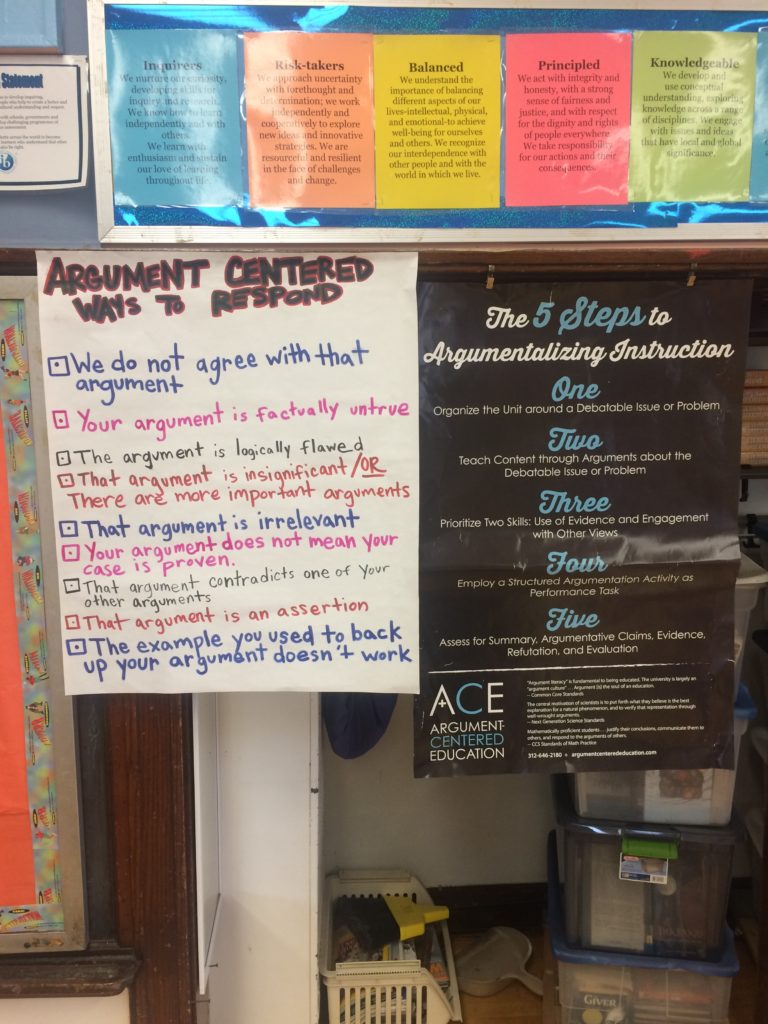 Statement
Inquirers
We nurture our curiosity,
developing skills for
inquiry and research.
We know how to learn
independently and with
others.
We learn with
enthusiasm and sustain
our love of learning
throughout life.
Risk-takers
We approach uncertainty
with forethought and
determination; we work
independently and
cooperatively to explore
new ideas and innovative
strategies. We are
resourceful and resilient
in the face of challenges
and change.
Balanced
We understand the
importance of balancing
different aspects of our
lives-intellectual, physical,
and emotional-to achieve
well-being for ourselves
and others. We recognize
our interdependence with
other people and with the
world in which we live.
Principled
We act with integrity and
honesty, with a strong
sense of fairness and
justice, and with respect
for the dignity and rights
of people everywhere.
We take responsibility
for our actions and their
consequences.
Knowledgeable
We develop and
use conceptual
understanding, exploring
knowledge across a range
of disciplines. We engage
with issues and ideas
that have local and global
significance.
ARGUMENT CENTERED
WAYS TO RESPOND
We do not agree with that
argument
Your argument is factually untrue
The argument is logically flawed
That argument is insignificant/OR
There are more important arguments
That argument is irrelevant
Your argument does not mean your
case is proven.
That argument contradicts one of your
other arguments
That argument is an assertion
The example you used to back
up your argument doesn't work
The 5 Steps to
Argumentalizing Instruction
One
Organize the Unit around a Debatable Issue or Problem
Two
Teach Content through Arguments about the
Debatable Issue or Problem
Three
Prioritize Two Skills: Use of Evidence and Engagement
with Other Views
Four
Employ a Structured Argumentation Activity as
Performance Task
Five
Assess for Summary, Argumentative Claims, Evidence,
Refutation, and Evaluation
A+CE
ARGUMENT-
CENTERED
EDUCATION
"Argument literacy" is fundamental to being educated. The university is largely an
"argument culture" . . . Argument [is] the soul of an education.
-- Common Core Standards
The central motivation of scientists is to put forth what they believe is the best
explanation for a natural phenomenon, and to verify that representation through
well-wrought arguments.
-- Next Generation Science Standards
Mathematically proficient students . . . justify their conclusions, communicate them to
others, and respond to the arguments of others.
-- CCS Standards of Math Practice
312-646-2180 • argumentcenterededucation.com
GIVER